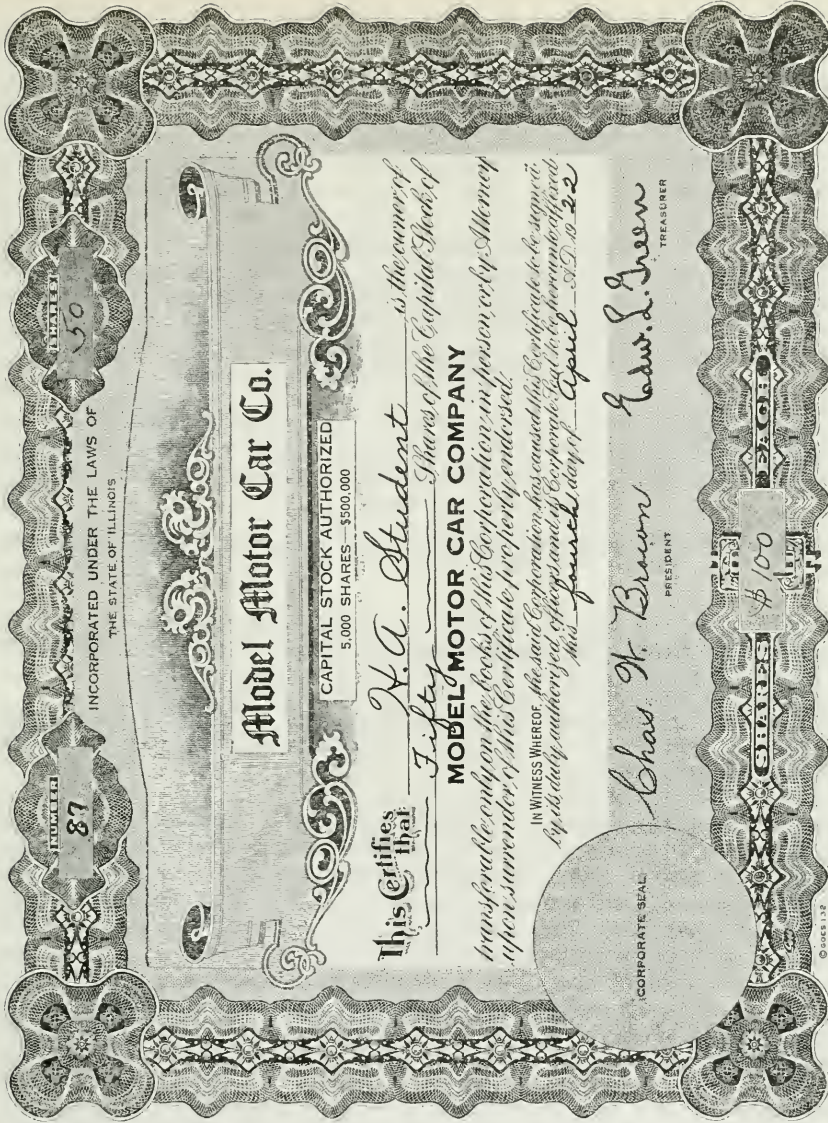 NUMBER
87
SHARES
50
INCORPORATED UNDER THE LAWS OF
THE STATE OF ILLINOIS
Model Motor Car Co.
CAPITAL STOCK AUTHORIZED
5,000 SHARES — $500,000
This Certifies that H. A. Student is the owner of
Fifty Shares of the Capital Stock of
MODEL MOTOR CAR COMPANY
transferable only on the books of this Corporation in person or by Attorney
upon surrender of this Certificate properly endorsed.
In Witness Whereof, the said Corporation has caused this Certificate to be signed
by its duly authorized officers and its Corporate Seal to be hereunto affixed
this fourth day of April A.D. 1922
Chas. W. Brown
PRESIDENT
Edw. L. Green
TREASURER
CORPORATE SEAL
SHARES
$100
EACH
© GOES 132